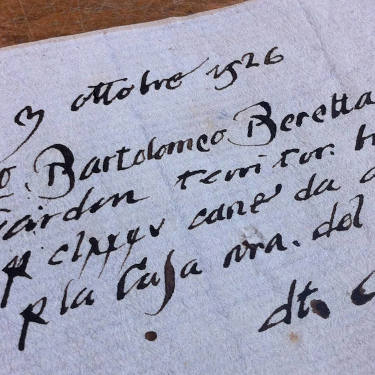 3 ottobre 1526
o. Bartolomeo Beretta
Gardon territor.
p clxxxv cane da
p la Casa nra. del
dt.